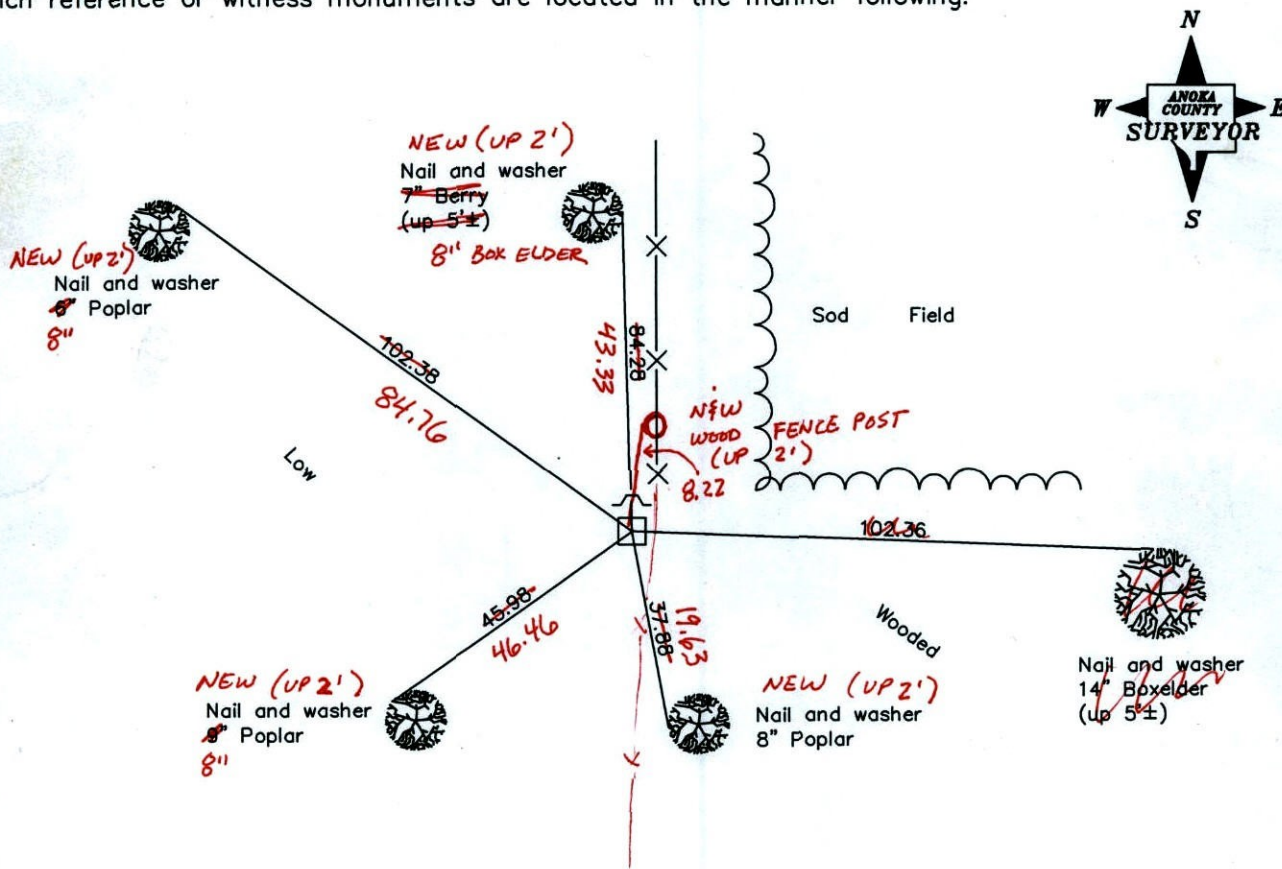 ich reference or witness monuments are located in the manner following:
N
W
ANOKA
COUNTY
SURVEYOR
E
S
NEW (UP 2')
Nail and washer
7" Berry
(up 5'±)
8" BOX ELDER
NEW (UP 2')
Nail and washer
6" Poplar
8"
102.38
84.76
84.28
43.33
Sod Field
NEW
WOOD FENCE POST
(UP 2')
8.22
Low
102.36
45.98
46.46
37.88
19.63
Wooded
Nail and washer
14" Boxelder
(up 5'±)
NEW (UP 2')
Nail and washer
9" Poplar
8"
NEW (UP 2')
Nail and washer
8" Poplar